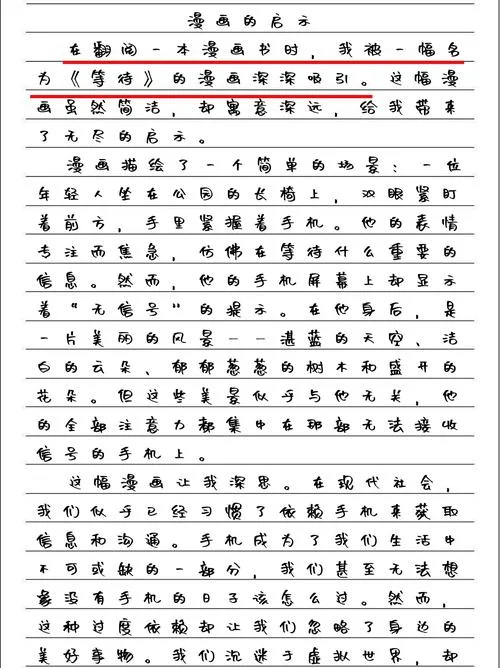 漫画的启示
在翻阅一本漫画书时，我被一幅名
为《等待》的漫画深深吸引。这幅漫
画虽然简洁，却寓意深远，给我带来
了无尽的启示。
漫画描绘了一个简单的场景：一位
年轻人坐在公园的长椅上，双眼紧盯
着前方，手里紧握着手机。他的表情
专注而焦急，仿佛在等待什么重要的
信息。然而，他的手机屏幕上却显示
着“无信号”的提示。在他身后，是
一片美丽的风景——湛蓝的天空、洁
白的云朵、郁郁葱葱的树木和盛开的
花朵。但这些美景似乎与他无关，他
的全部注意力都集中在那部无法接收
信号的手机上。
这幅漫画让我深思。在现代社会，
我们似乎已经习惯了依赖手机来获取
信息和沟通。手机成为了我们生活中
不可或缺的一部分，我们甚至无法想
象没有手机的日子该怎么过。然而，
这种过度依赖却让我们忽略了身边的
美好事物。我们沉迷于虚拟世界，却